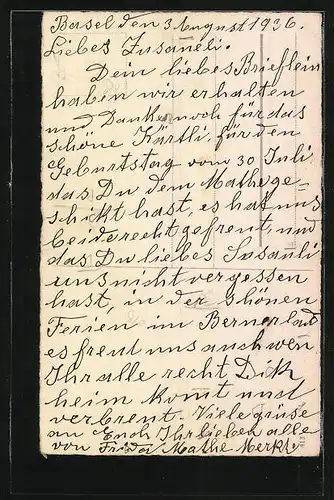 Basel den 3 August 1936.
Liebes Susaneli.
Dein liebes Brieflein
haben wir erhalten
und Danke noch für das
schöne Kärtli, für den
Geburtstag vom 30 Juli
das Du dem Mathe ge-
schikt hast, es hat uns
beide recht gefreut, und
das Du liebes Susanli
uns nicht vergessen
hast, in der schönen
Ferien im Bernerland
es freut uns auch wen
Ihr alle recht Dik
heim komt und
verbrent. Viele grüse
an Euch Ihr lieben alle
von Frida Mathe Merkt.